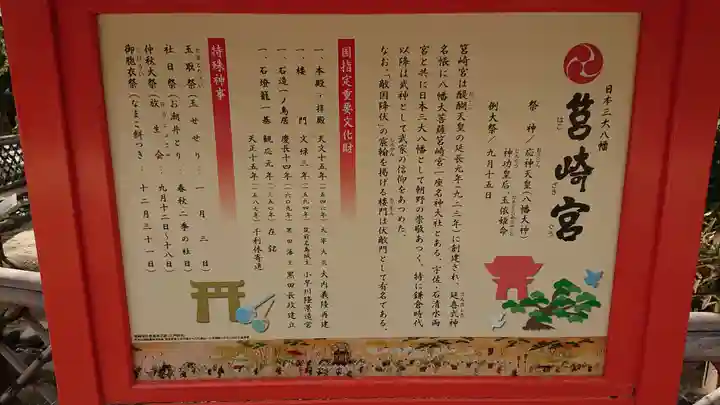 日本三大八幡
筥崎宮
はこ ざき ぐう
祭 神／応神天皇(八幡大神)
神功皇后・玉依姫命
例大祭／九月十五日
筥崎宮は醍醐天皇の延長元年(九二三年)に創建され、延喜式神
名帳に八幡大菩薩筥崎宮一座名神大社とある。宇佐・石清水両
宮と共に日本三大八幡として朝野の崇敬あつく、特に鎌倉時代
以降は武神として武家の信仰をあつめた。
なお「敵国降伏」の宸翰を掲げる楼門は伏敵門として有名である。
国指定重要文化財
一、本殿・拝殿 天文十五年(一五四六年) 大宰大弐 大内義隆再建
一、楼 門 文禄三年(一五九四年) 筑前名島城主 小早川隆景造営
一、石造一ノ鳥居 慶長十四年(一六〇九年) 黒田藩主 黒田長政建立
一、石燈籠一基 観応元年(一三五〇年)在銘
天正十五年(一五八七年) 千利休寄進
特殊神事
玉取祭(玉せせり) 一月三日
社日祭(お潮井とり) 春秋二季の社日
仲秋大祭(放生会) 九月十二日〜十八日
御胞衣祭(なまこ餅つき) 十二月三十一日